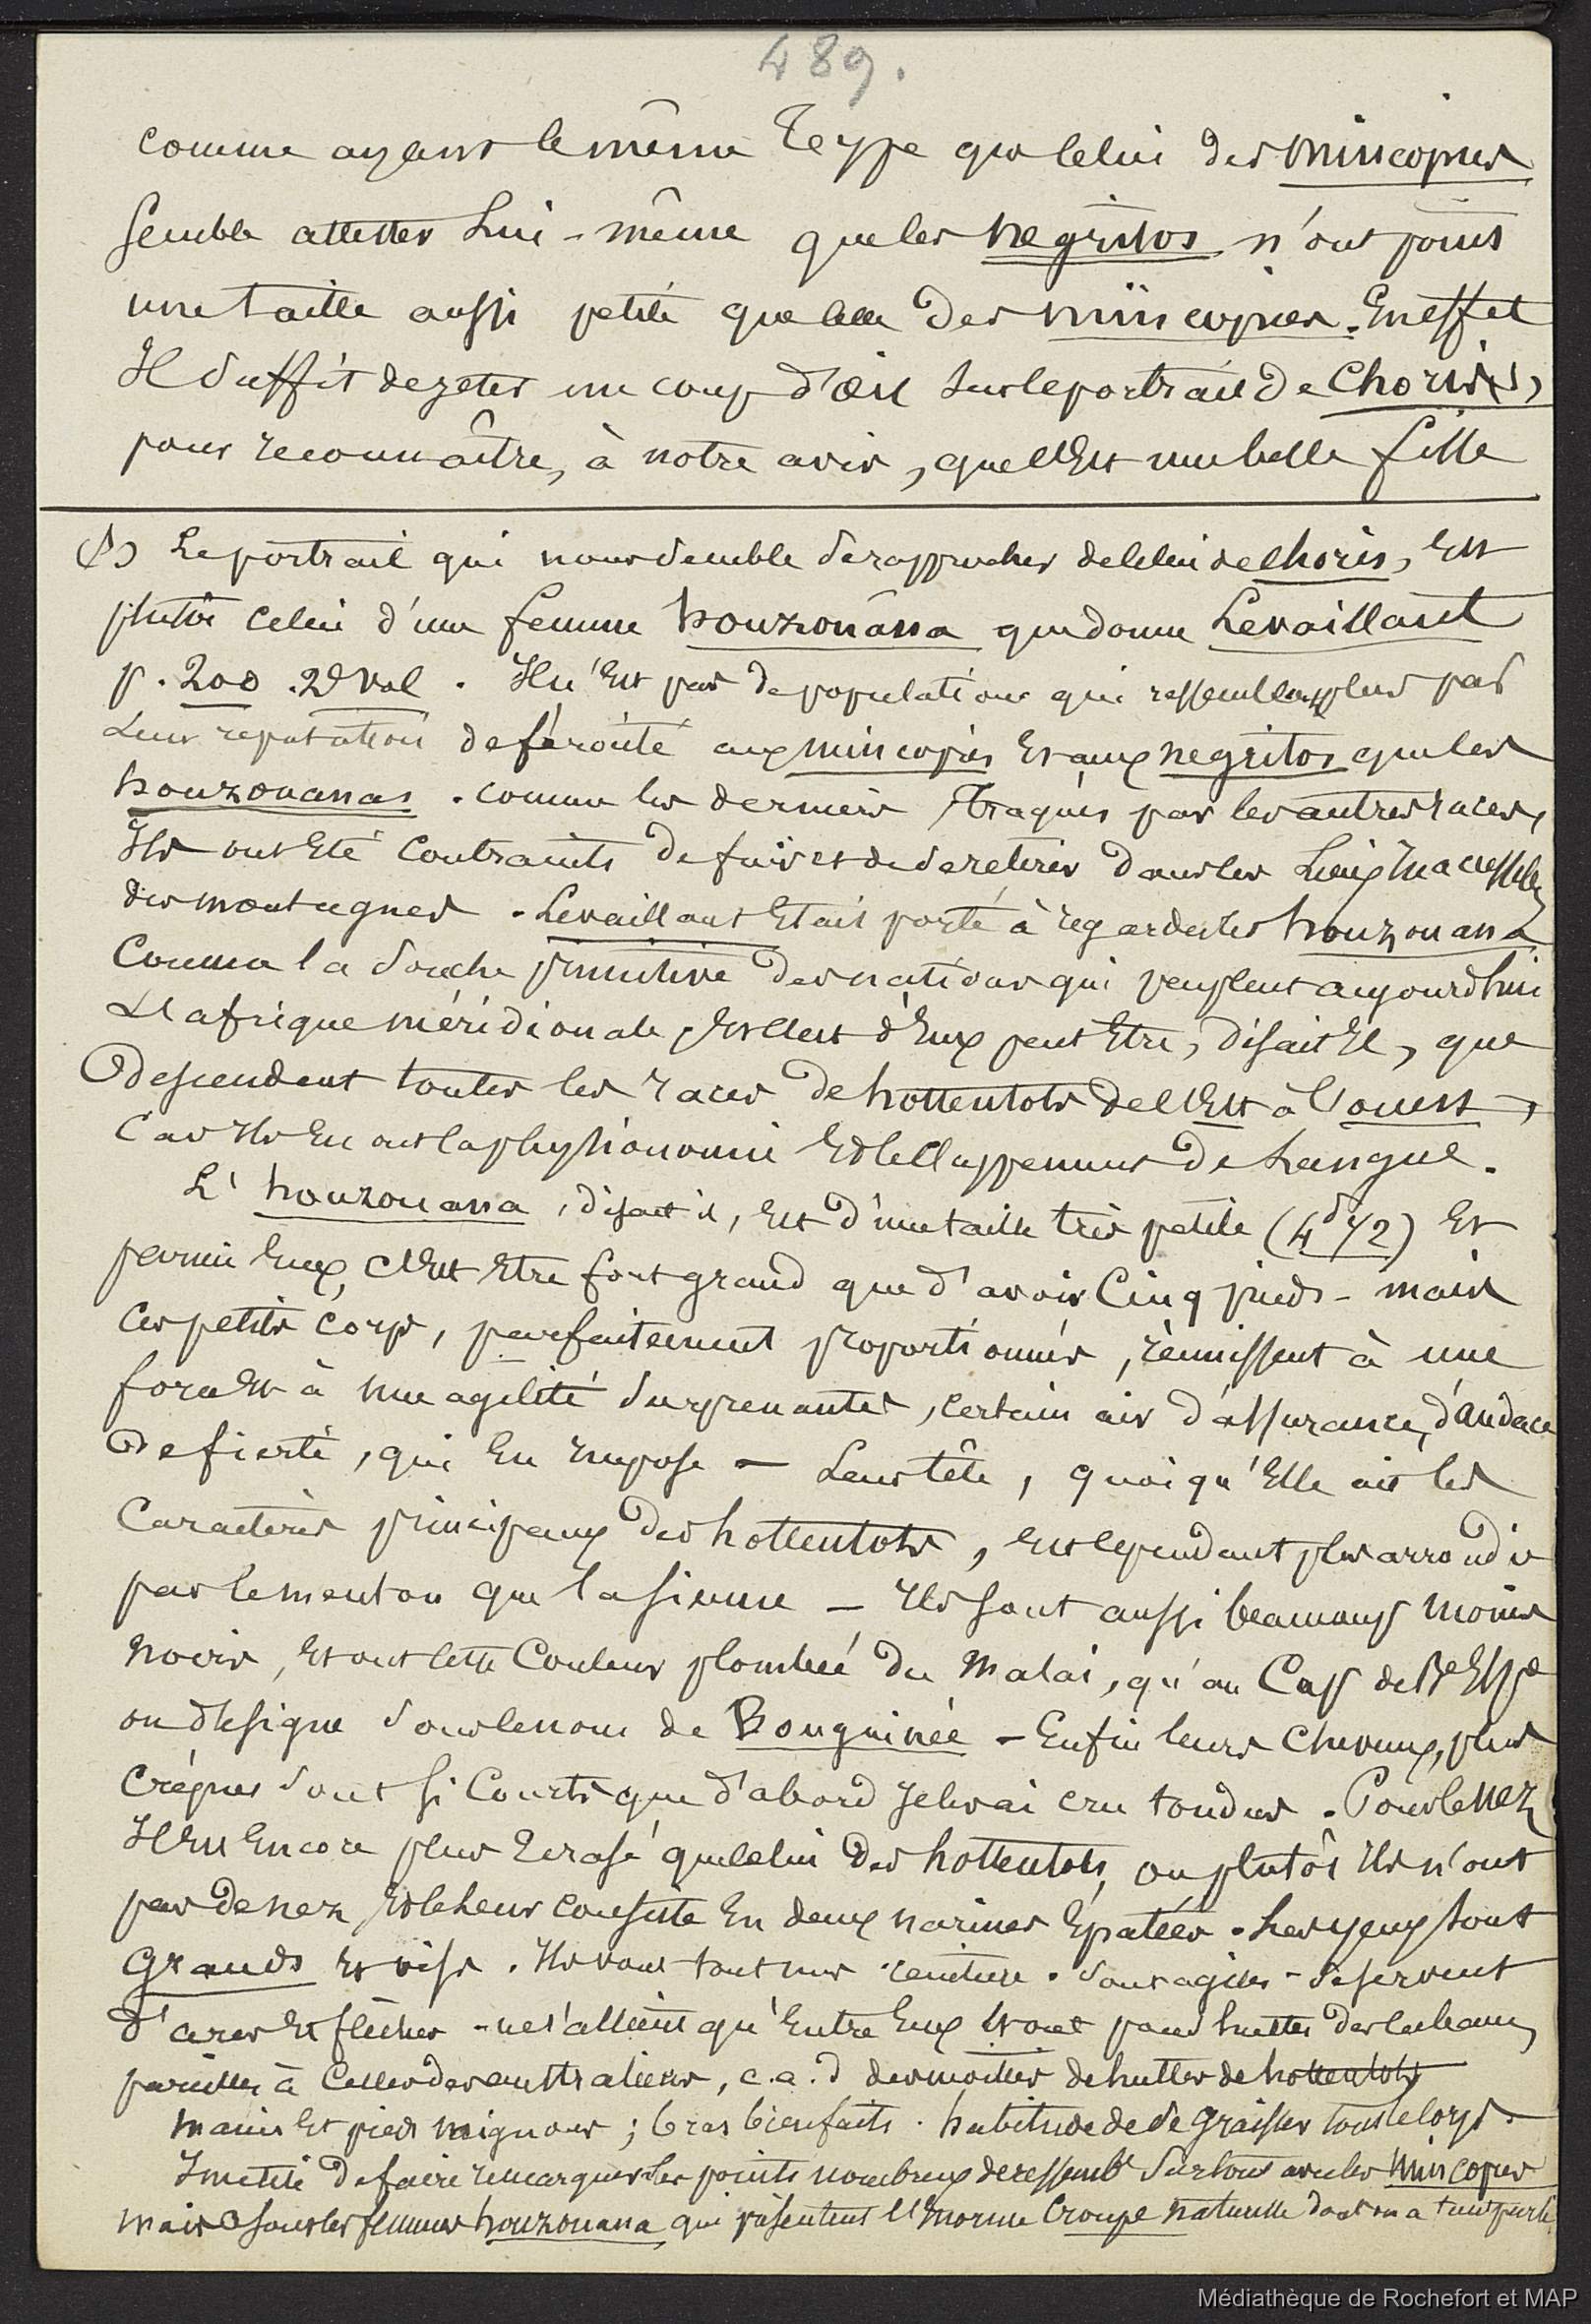 489.
comme ayant le même type que celui des mincopies
semble attester lui-même que les negritos n'ont point
une taille aussi petite que celle des mincopies. En effet
Il suffit de jeter un coup d'œil sur le portrait de Choris (1),
pour reconnaître, à notre avis, que c'est une belle fille
(1) Le portrait qui nous semble se rapprocher de celui de choris, est
plutôt celui d'une femme houzouâna que donne Levaillant
p. 200. 2d vol. Il n'est pas de populations qui ressemblent plus par
leur reputation de férocité aux mincopies et aux negritos que les
houzouanas. comme les derniers traqués par les autres races,
Ils ont été contraints de fuir et de se retirer dans les lieux inaccessibles
des montagnes. Levaillant était porté à regarder les houzouana
comme la souche primitive des nations qui peuplent aujourd'hui
L'afrique méridionale, et c'est d'eux peut être, disait il, que
descendent toutes les races de hottentots de l'Est à l'ouest,
car ils en ont la physionomie et le clappement de langue.
L'houzouana, disait il, est d'une taille très petite (4d 1/2) et
parmi eux, c'est être fort grand que d'avoir cinq pieds - mais
ces petits corps, parfaitement proportionnés, réunissent à une
force et à une agilité surprenantes, certain air d'assurance, d'audace
de fierté, qui en impose - Leur tête, quoiqu'elle ait les
caractères principaux des hottentots, est cependant plus arrondie
par le menton que la sienne - Ils sont aussi beaucoup moins
noirs, et ont cette couleur plombée du malai, qu'au Cap de Be Espce
on désigne sous le nom de Bouguinée - Enfin leurs cheveux, plus
crépus sont si courts que d'abord je les ai cru tondus. Pour le nez
Il est encore plus écrasé que celui des hottentots, ou plutôt ils n'ont
pas de nez, et le leur consiste en deux narines épatées. Les yeux sont
grands et vifs. Ils vont tout nus ceinture. sont agiles - se servent
d'arcs et flêches - ne s'allient qu'entre eux et ont pour huttes des
pareilles à celles des australiens, c.a.d des moitiés de huttes de hottentots
mains et pieds mignons; bras bienfaits. habitude de se graisser tout le corps.
Inutile de faire remarquer les points nombreux de ressembl surtout avec les mincopies
mais ce sont les femmes houzouana qui présentent l'énorme croupe naturelle dont on a tant parlé
Médiathèque de Rochefort et MAP